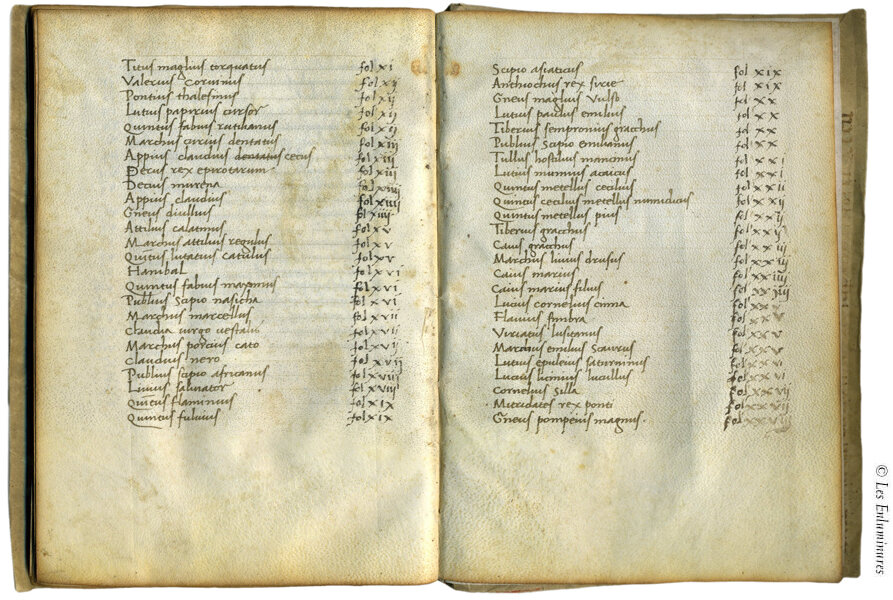 Titus maglius torquatus fol xi
Valerius Coruinus fol xij
Pontius thalesinus fol xij
Lutus papirius cursor fol xij
Quintus fabius rutilianus fol xij
Marchus curius dentatus fol xiij
Appius claudius dentatus cecus fol xiij
Pecus rex epirotarum fol xiij
Decius murena fol xiiij
Appius claudius fol xiiij
Gneus diullius fol xiiij
Attilius calatinus fol xv
Marchus attilius regulus fol xv
Quintus lutatius catulus fol xv
Hanibal fol xvi
Quintus fabius maximus fol xvi
Publius Scipio nasicha fol xvi
Marchus marcellus fol xvii
Claudia uirgo uestalis fol xvij
Marchus porcius cato fol xvij
Claudius nero fol xvij
Publius scipio africanus fol xviij
Liuius salinator fol xviij
Quintus flaminius fol xix
Quintus fuluius fol xix
Scipio asiaticus fol xix
Anthiochus rex sirie fol xix
Gneus maglius Vulso fol xx
Lutius paulus emilius fol xx
Tiberius sempronius gracchus fol xx
Publius Scipio emilianus fol xx
Tullus hostilius mancinus fol xxi
Lutius mumius acaicus fol xxi
Quintus metellus cecilius fol xxii
Quintus cecilius metellus numidicus fol xxij
Quintus metellus pius fol xxij
Tiberius gracchus fol xxij
Caius gracchus fol xxiij
Marchus liuius drusus fol xxiij
Caius marius fol xxiij
Caius marius filius fol xxiiij
Lucius cornelius cinna fol xxv
Flauius fimbra fol xxv
Viriatus lusitanus fol xxv
Marchus emilius Scaurus fol xxv
Lutius epuleius saturninus fol xxvi
Lucius licinius lucullus fol xxvi
Cornelius Silla fol xxvij
Mitridates rex ponti fol xxvij
Gneus pompeius magnus. fol xxvij
© Les Enluminures